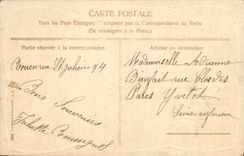 CARTE POSTALE
Tous les Pays Étrangers acceptent pas la Correspondance au Recto
(Se renseigner à la Poste.)
Partie réservée à la correspondance
Adresse du destinataire
Rouen rue St Julien 94
Bons Souvenirs
Juliette
Mademoiselle Adrienne
rue
Paris Yvetot
Seine inférieure